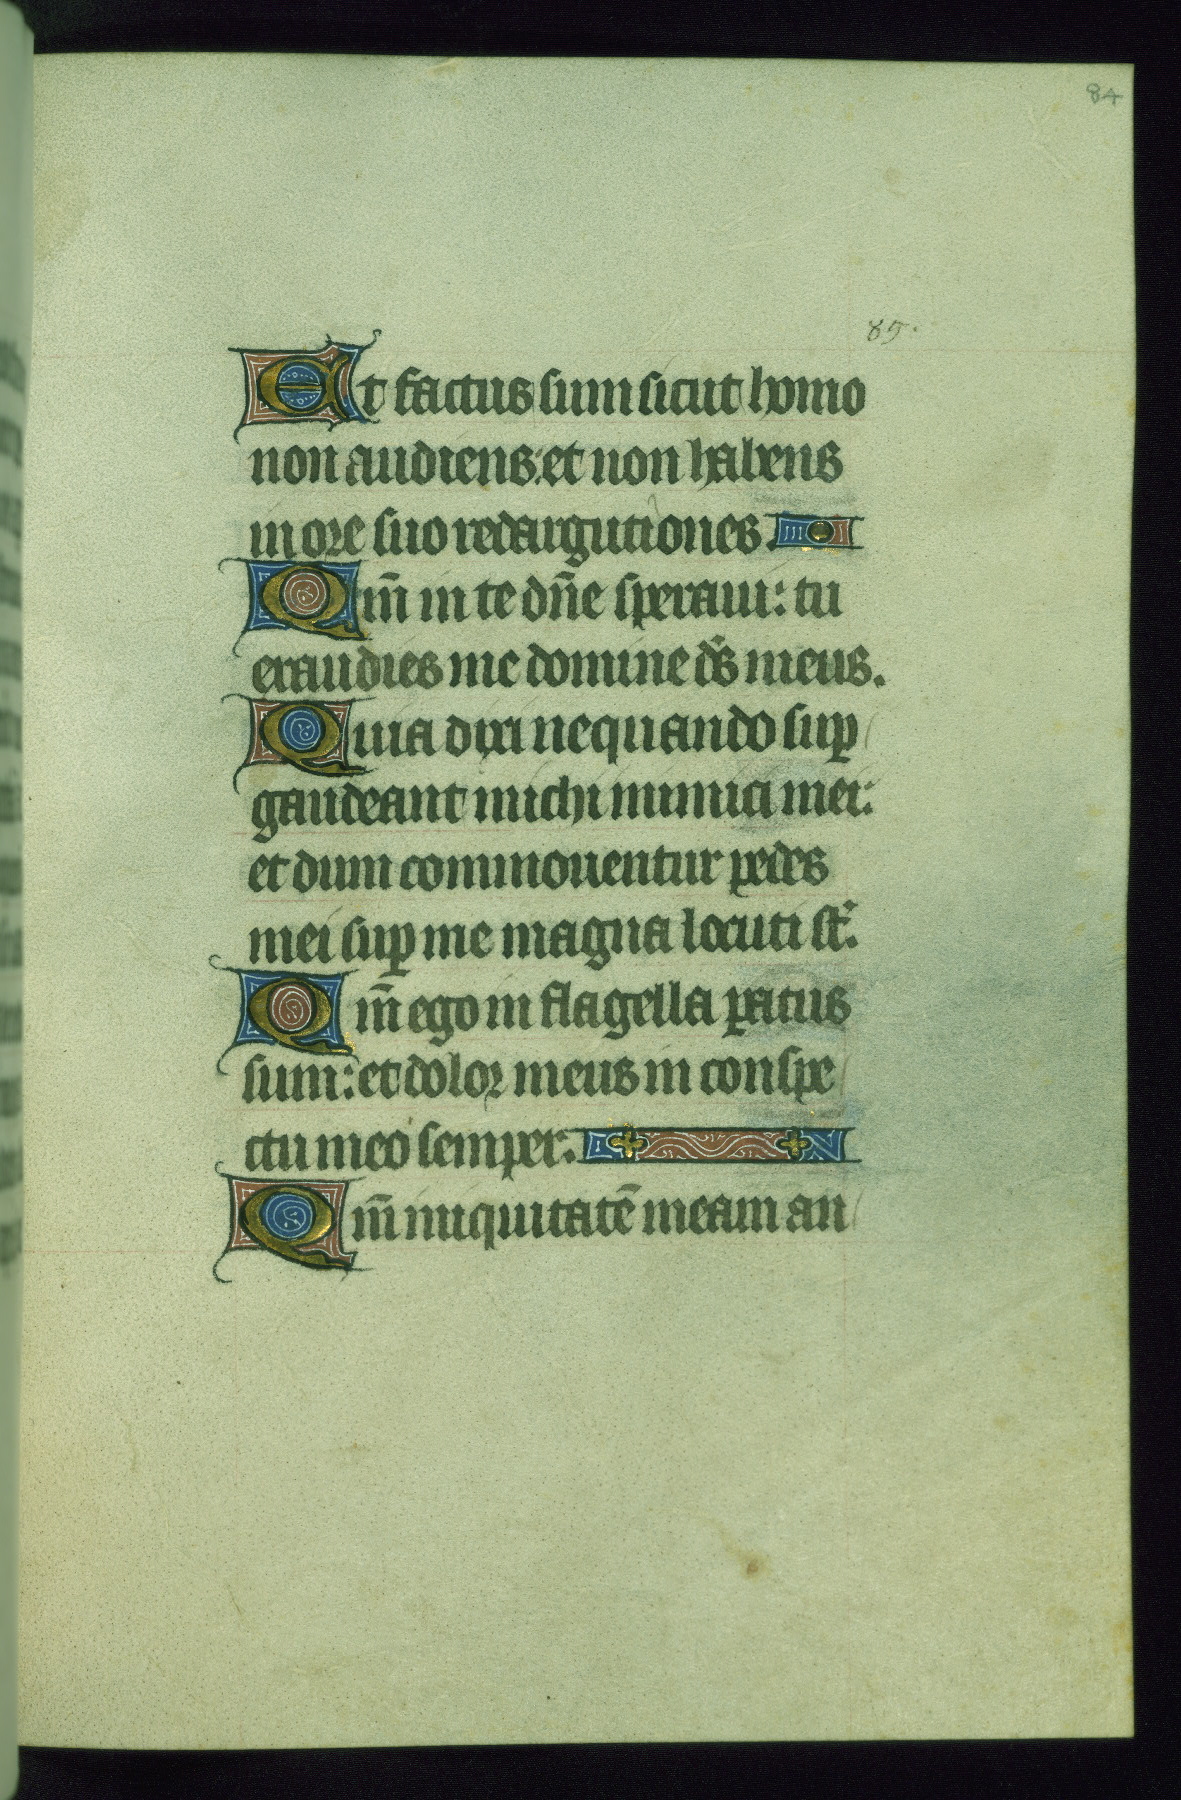 84
85.
Et factus sum sicut homo
non audiens: et non habens
in ore suo redargutiones.
Qm̄ in te dn̄e speraui: tu
exaudies me domine ds̄ meus.
Quia dixi nequando sup
gaudeant michi inimici mei:
et dum commouentur pedes
mei sup me magna locuti st̄.
Qm̄ ego in flagella paratus
sum: et dolor meus in conspe
ctu meo semper.
Qm̄ iniquitatē meam an